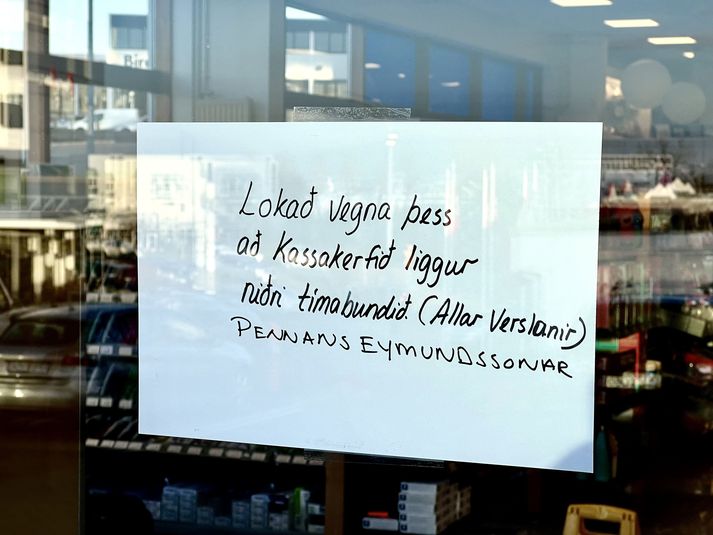 Lokað vegna þess
að Kassakerfið liggur
niðri tímabundið. (Allar Verslanir)
PENNANS EYMUNDSSONAR